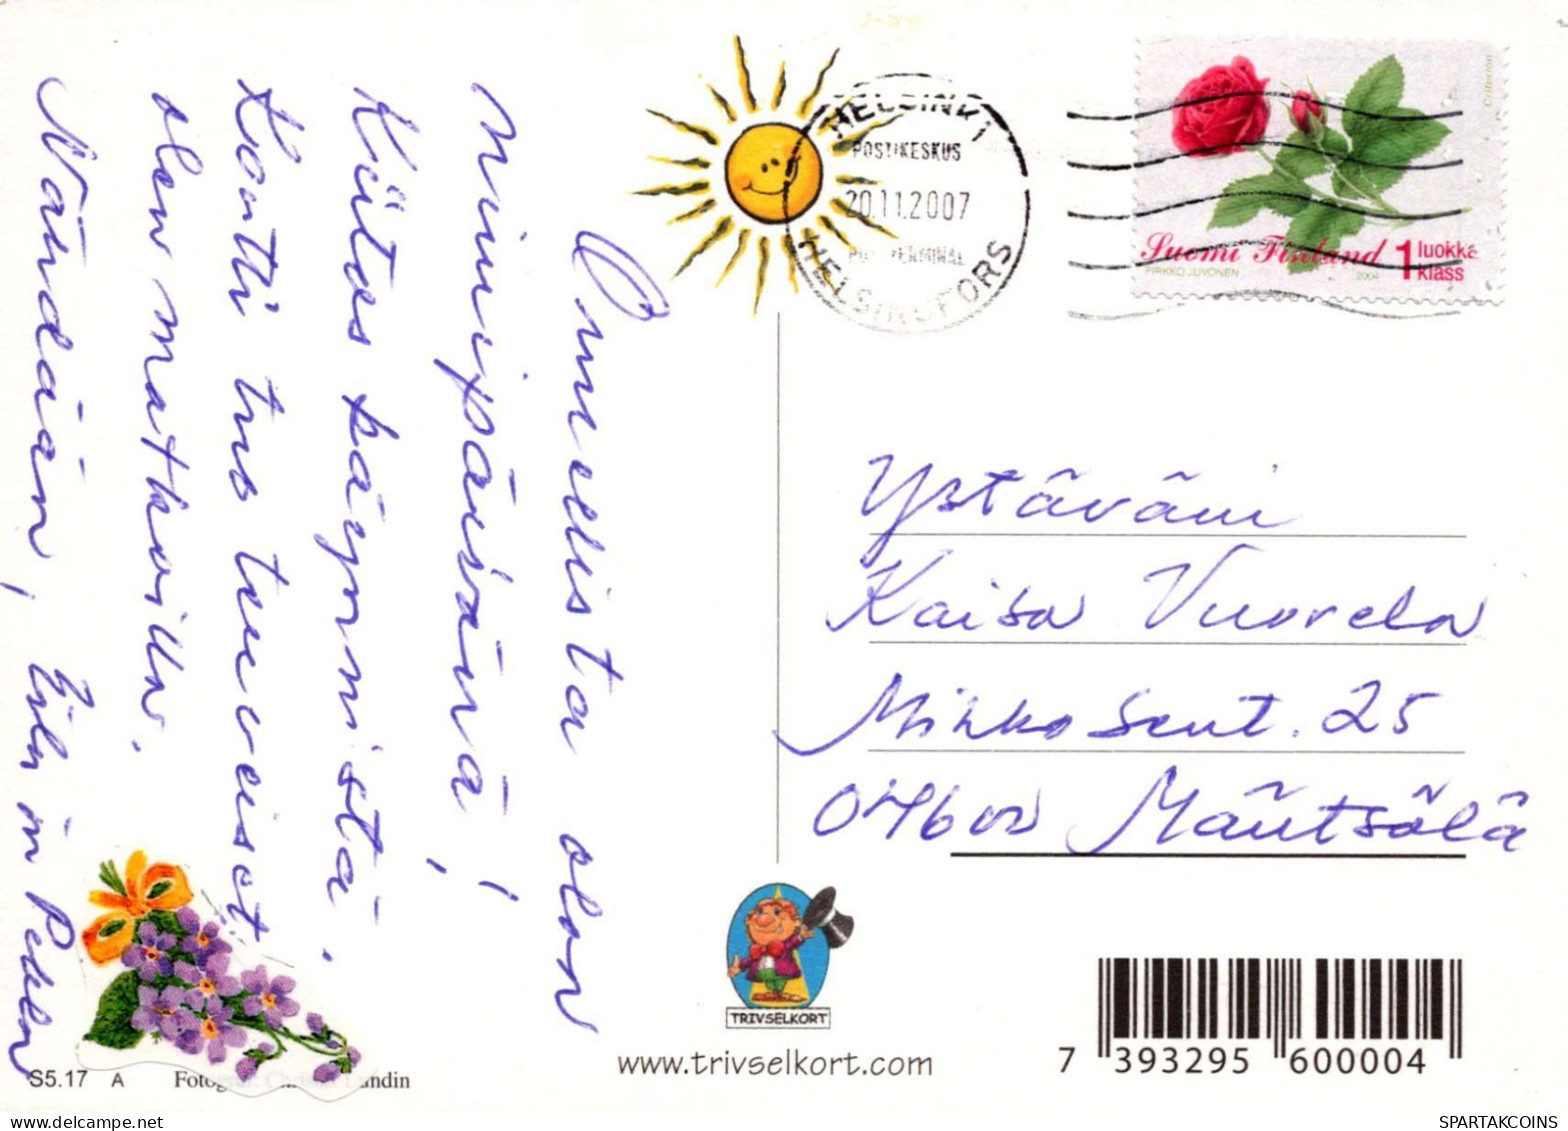 Onnellista olon
nimipäivänä!
Kiitos käynnistä,
Kortti tuo terveiset
olen matkoilla.
Nähdään,
HELSINKI
POSTIKESKUS
20.11.2007
HELSINGFORS
Suomi Finland 1 luokka
klass
PIRKKO JUVONEN
2004
Ystäväni
Kaisa Vuorela
Mikko Sent. 25
04600 Mäntsälä
TRIVSELKORT
www.trivselkort.com
7 393295 600004
S5.17 A
SPARTAKCOINS